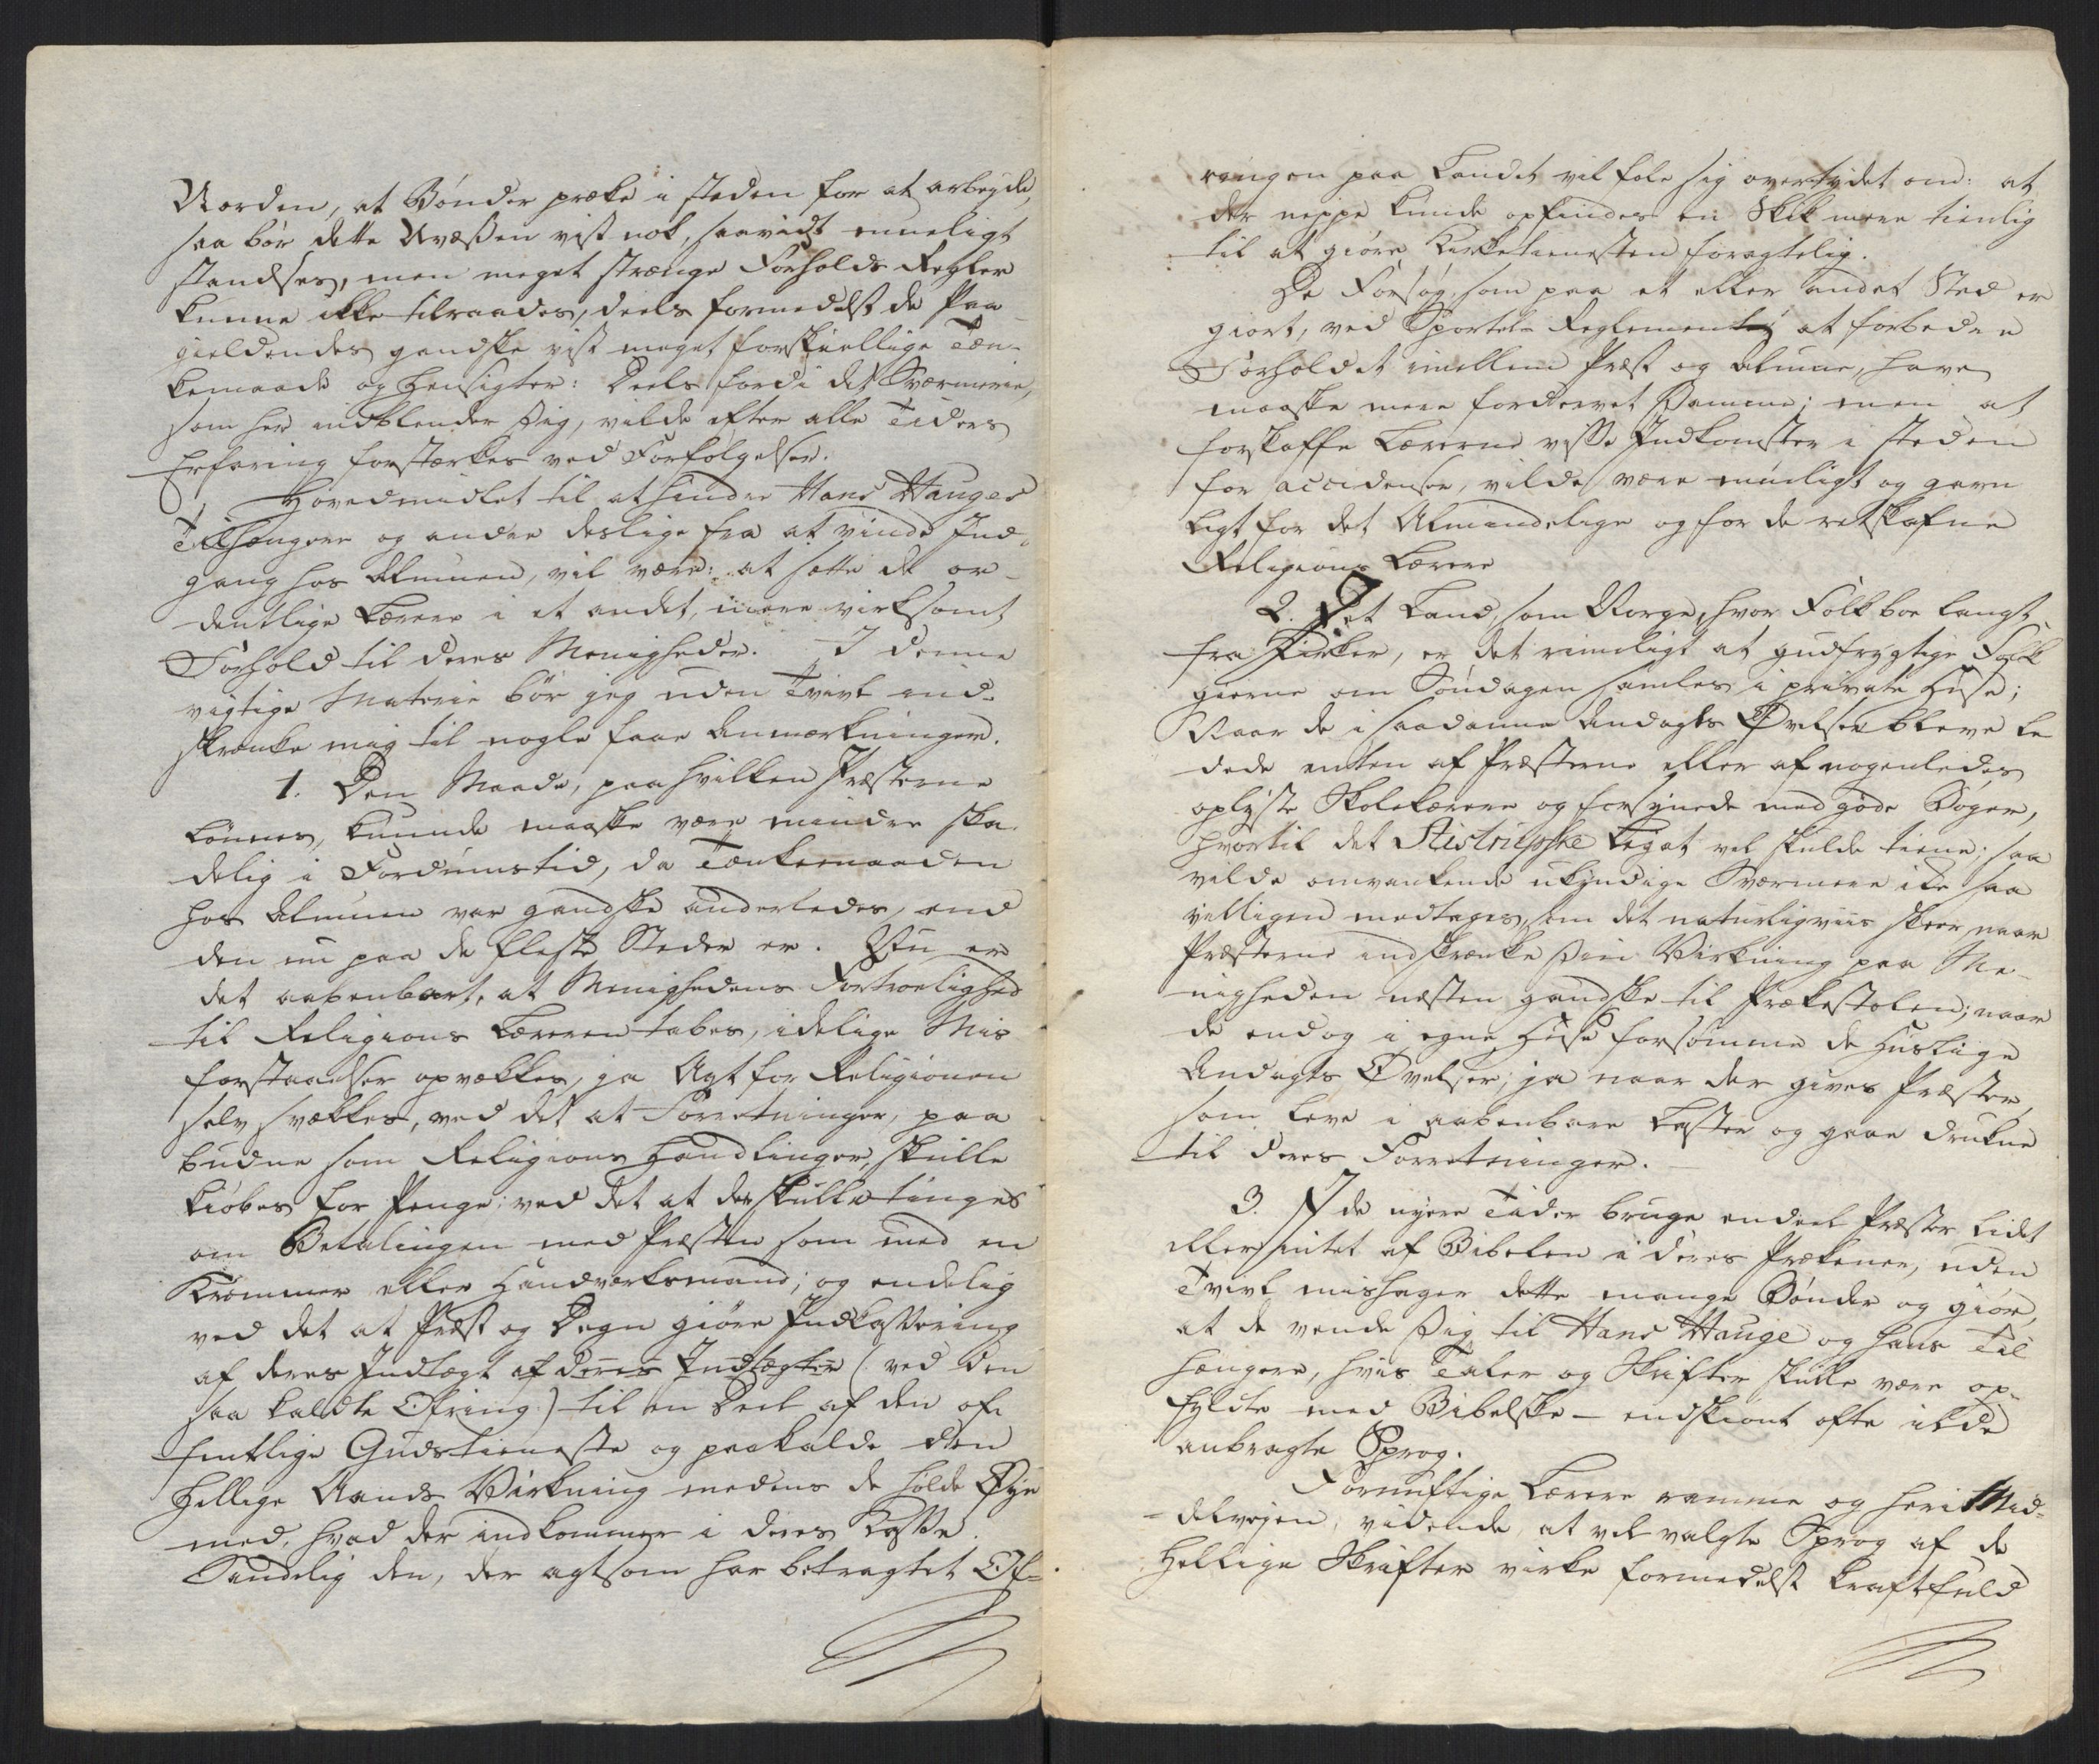 Uorden, at Bønder præke i steden for at arbeyde,
saa bør dette Uvæßen vist nok, saavidt mueligt
standses, men meget strænge Forholds Regler
kunne ikke tilraades, deels formedelst de Paa
gieldendes gandske vist meget forskiellige Tæn-
kemaade og Hensigter: Deels fordi det Sværmerie,
som her indblender sig, vilde efter alle Tiders
Erfaring forstærkes ved Forfølgelser.
Hovedmidlet til at hindre Hans Hauges
Tilhængere og andre deslige fra at vinde Ind-
gang hos Almuen, vil være: at sætte de or-
dentlige Lærere i et andet, mere virksomt
Forhold til deres Menigheder. I denne
vigtige Materie bør jeg uden Tvivl ind-
skrænke mig til nogle faae Anmærkninger.
1. Den Maade, paa hvilken Præsterne
lønnes, kunde maaske være mindre ska-
delig i Fordumstid, da Tænkemaaden
hos Almuen var gandske anderledes, end
den nu paa de fleste Steder er. Nu er
det aabenbart, at Menighedens Fortroelighed
til Religions Læreren tabes, idelige Mis
forstaaelser opvækkes, ja Agt for Religionen
selv svækkes, ved det at Forretninger, paa
budne som Religions Handlinger, skulle
kiøbes for Penge; ved det at der skulle tinges
om Betalingen med Præsten som med en
Kræmmer eller Handverksmand; og endelig
ved det at Præst og Degn giøre Indkassering
af deres Indtægt af deres Indtægter (ved den
saa kaldte Ofring) til en Deel af den of-
fentlige Gudstieneste og paakalde den
Hellige Aands Virkning medens de holde Øye
med, hvad der indkommer i deres Kasse.
Sandelig den, der agtsom har betragtet Of-
ringen paa Landet vil føle sig overtydet om: at
der neppe kunde opfindes en Skik mere tienlig
til at giøre Kirketienesten foragtelig.
De Forsøg, som paa et eller andet Sted er
giort, ved Sportel-Reglementer at forbedre
Forholdet imellem Præst og Almue, have
maaske mere fordærvet Samme; men at
forskaffe Lærerne visse Indkomster i steden
for accidenser, vilde være mueligt og gavn
ligt for det Almindelige og for de retskafne
Religions Lærere
2. I et Land, som Norge, hvor Folk boe langt
fra Kirker, er det rimeligt at gudfrygtige Folk
gierne om Søndagen samles i private Huse;
Naar de i saadanne Andagts Øvelser bleve le
dede enten af Præsterne eller af nogenledes
oplyste Skolelærere og forsynede med gode Bøger,
hvortil det Stistrupske Legat vel skulde tiene; saa
vilde omvankende ukyndige Sværmere ikke saa
villigen modtages, som det naturligviis skeer, naar
Præsterne indskrænke sin Virkning paa Me-
nigheden næsten gandske til Prækestolen; naar
de endog i egne Huse forsømme de Huslige
Andagts Øvelser; ja naar der gives Præster,
som leve i aabenbare Laster og gaae drukne
til deres Forretninger.
3. I de nyere Tider bruge endeel Præster lidet
eller intet af Bibelen i deres Prækener, uden
Tvivl mishager dette mange Bønder og giør,
at de vende sig til Hans Hauge og hans Til
hængere, hvis Taler og Skrifter skulle være op-
fyldte med Bibelske – endskiønt ofte ilde
anbragte Sprog.
Fornuftige Lærere ramme og heri Mid-
delveien, vidende, at vel valgte Sprog af de
Hellige Skrifter virke formedelst kraftfuld